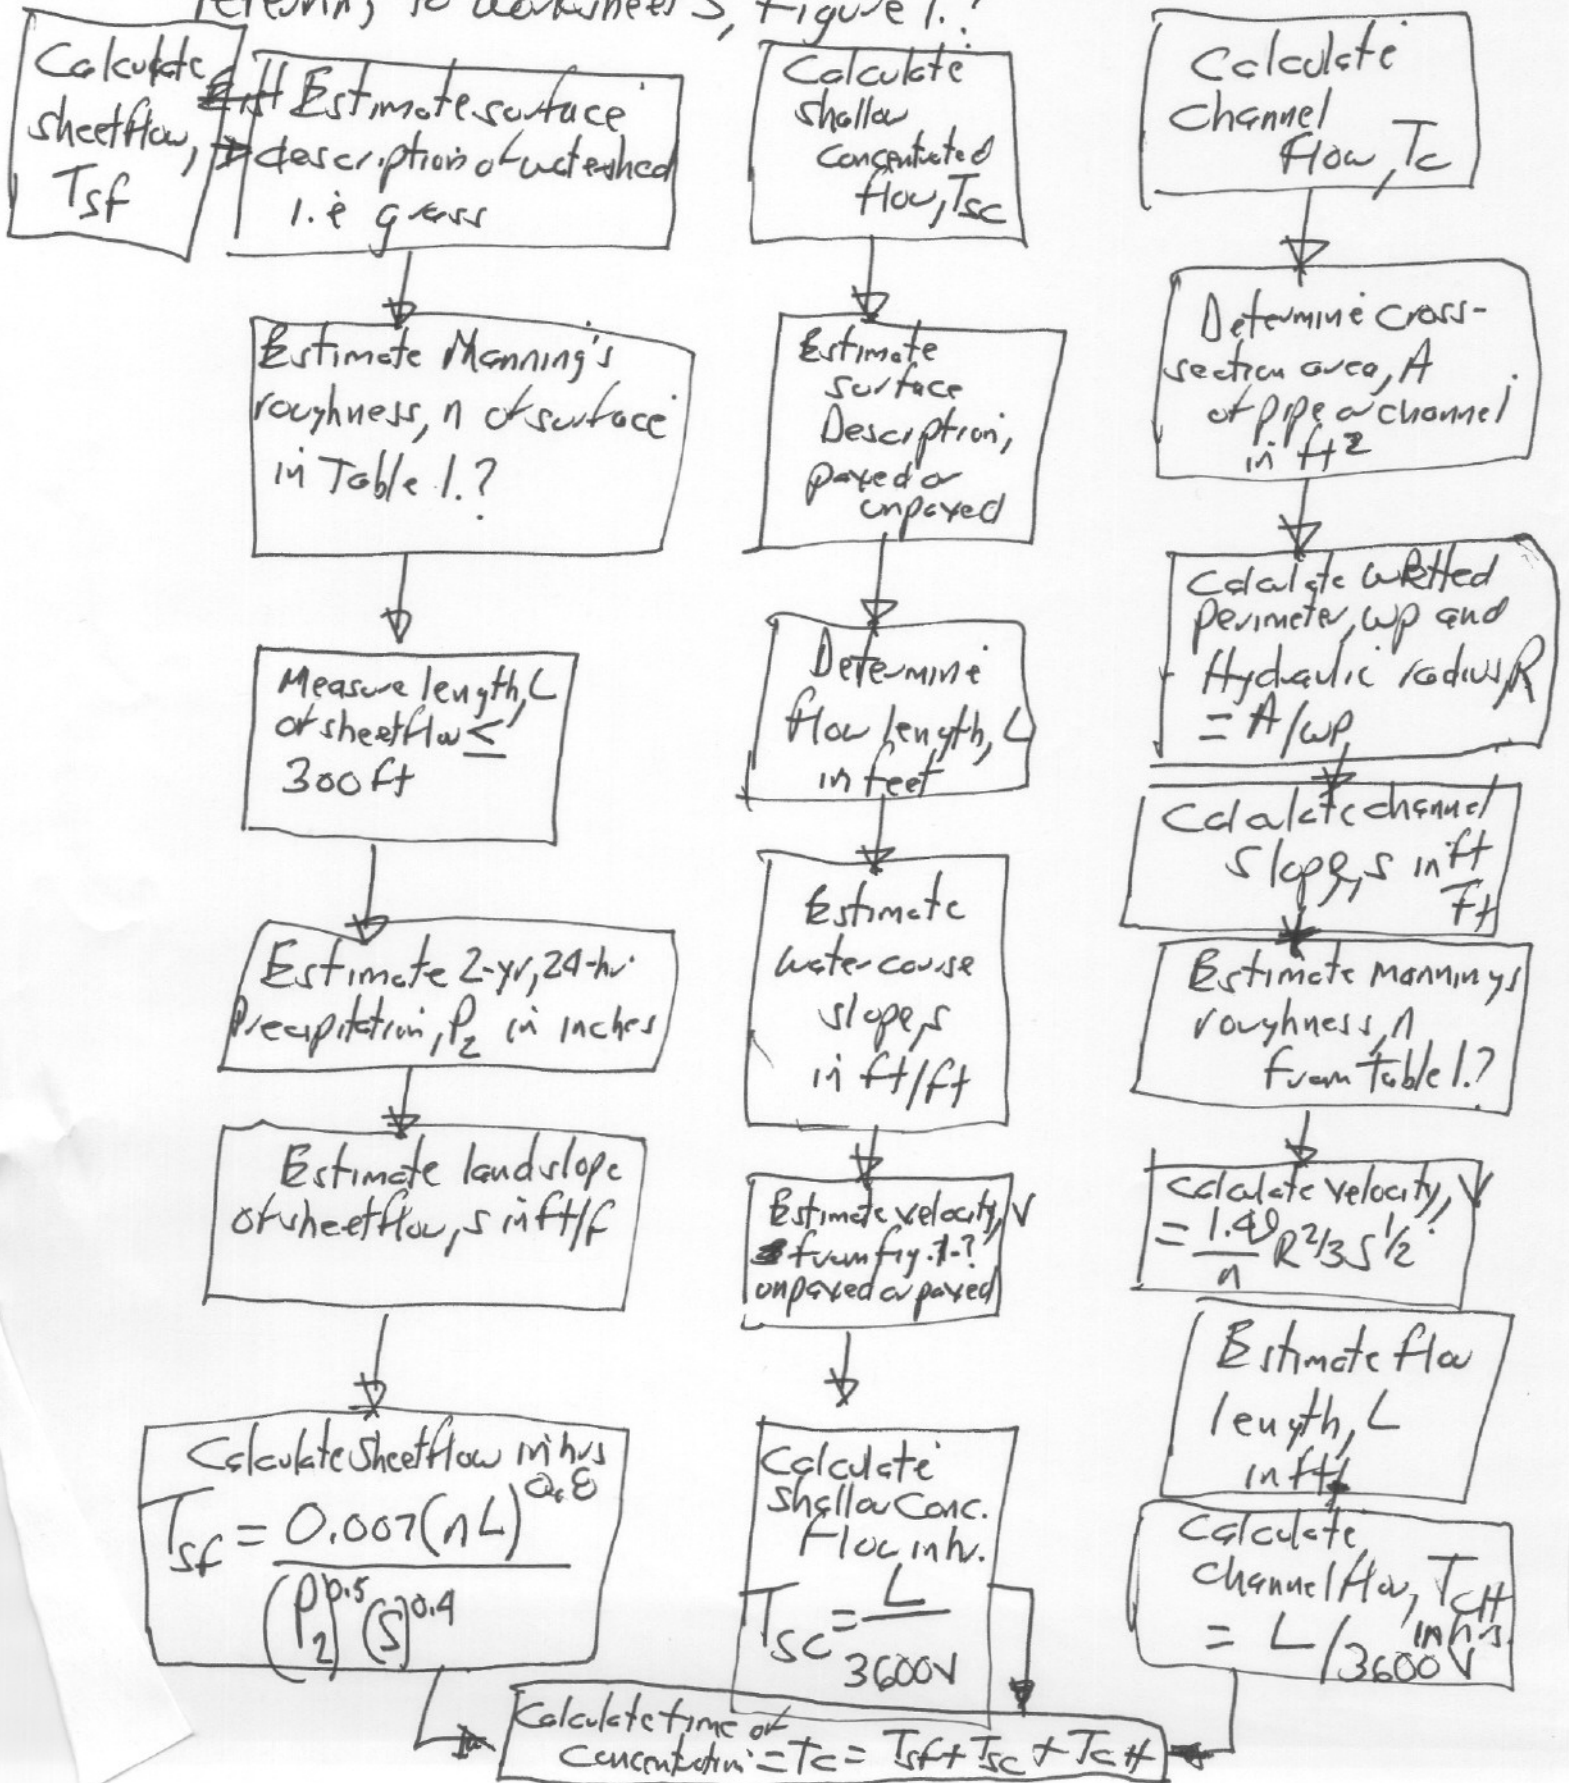 referring to Worksheet 3, Figure 1.?
Calculate
sheetflow,
Tsf
Estimate surface
description of watershed
i.e grass
Estimate Manning's
roughness, n of surface
in Table 1.?
Measure length, L
of sheetflow ≤
300 ft
Estimate 2-yr, 24-hr
Precipitation, P2 in inches
Estimate land slope
of sheetflow, s in ft/f
Calculate Sheetflow in hrs
Tsf = 0.007(nL)^0.8
(P2)^0.5 (S)^0.4
Calculate
shallow
concentrated
flow, Tsc
Estimate
surface
Description,
paved or
unpaved
Determine
flow length, L
in feet
Estimate
watercourse
slope, s
in ft/ft
Estimate velocity, V
from fig. 1-?
unpaved or paved
Calculate
Shallow Conc.
Flow in hr.
Tsc = L
3600V
Calculate
Channel
flow, Tc
Determine cross-
section area, A
of pipe or channel
in ft²
Calculate wetted
perimeter, wp and
Hydraulic radius, R
= A/wp
Calculate channel
slope, s in ft
Ft
Estimate Mannings
roughness, n
from Table 1.?
Calculate velocity, V
= 1.49 R^2/3 S^1/2
n
Estimate flow
length, L
in ft
Calculate
channel flow, TcH
in hrs
= L/3600V
Calculate time of
concentration = Tc = Tsf + Tsc + TcH